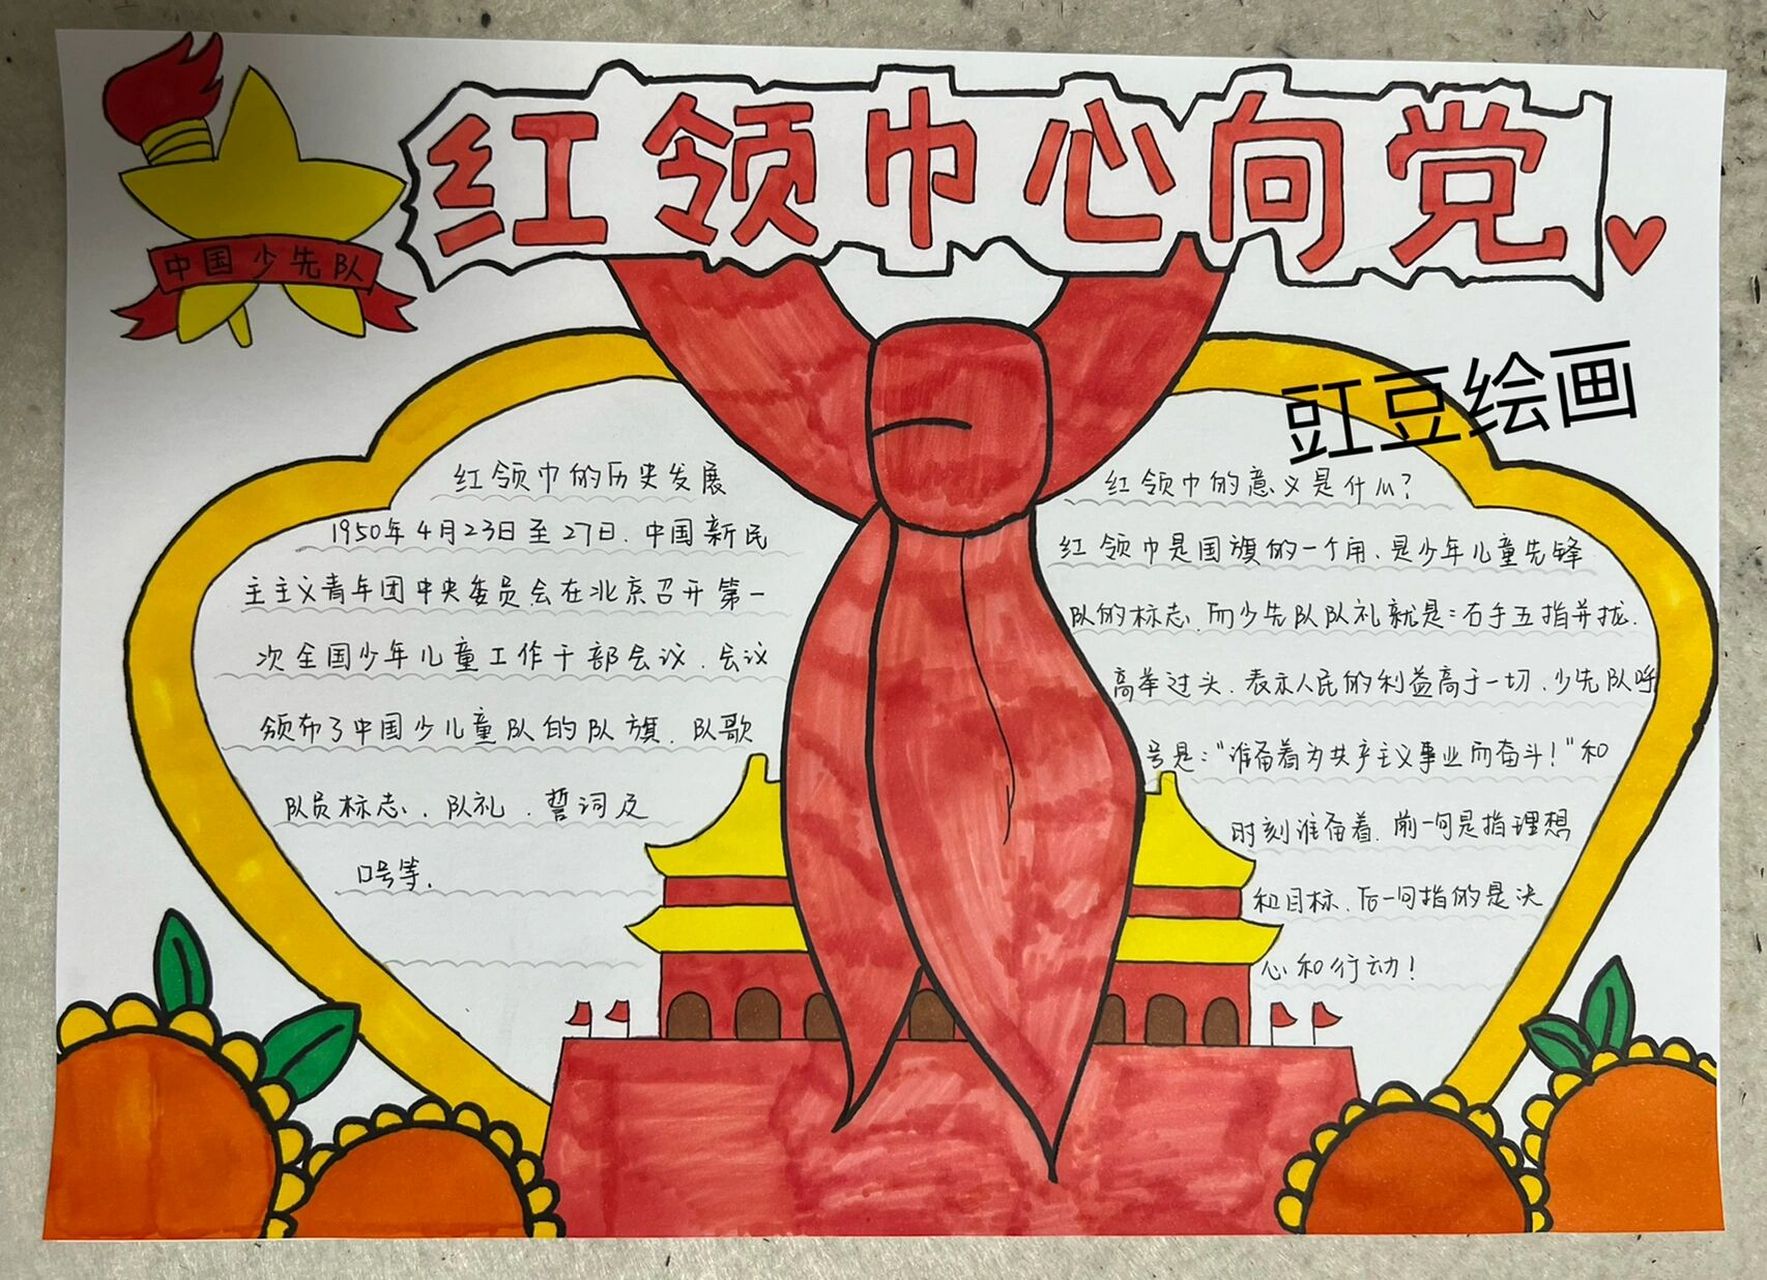 红领巾心向党
中国少先队
豇豆绘画
红领巾的历史发展
1950年4月23日至27日、中国新民
主主义青年团中央委员会在北京召开第一
次全国少年儿童工作干部会议、会议
颁布了中国少儿童队的队旗、队歌
队员标志、队礼、誓词及
口号等.
红领巾的意义是什么?
红领巾是国旗的一个角、是少年儿童先锋
队的标志、而少先队队礼就是:右手五指并拢.
高举过头、表示人民的利益高于一切、少先队呼
号是:"准备着为共产主义事业而奋斗!"和
时刻准备着、前一句是指理想
和目标、后一句指的是决
心和行动!